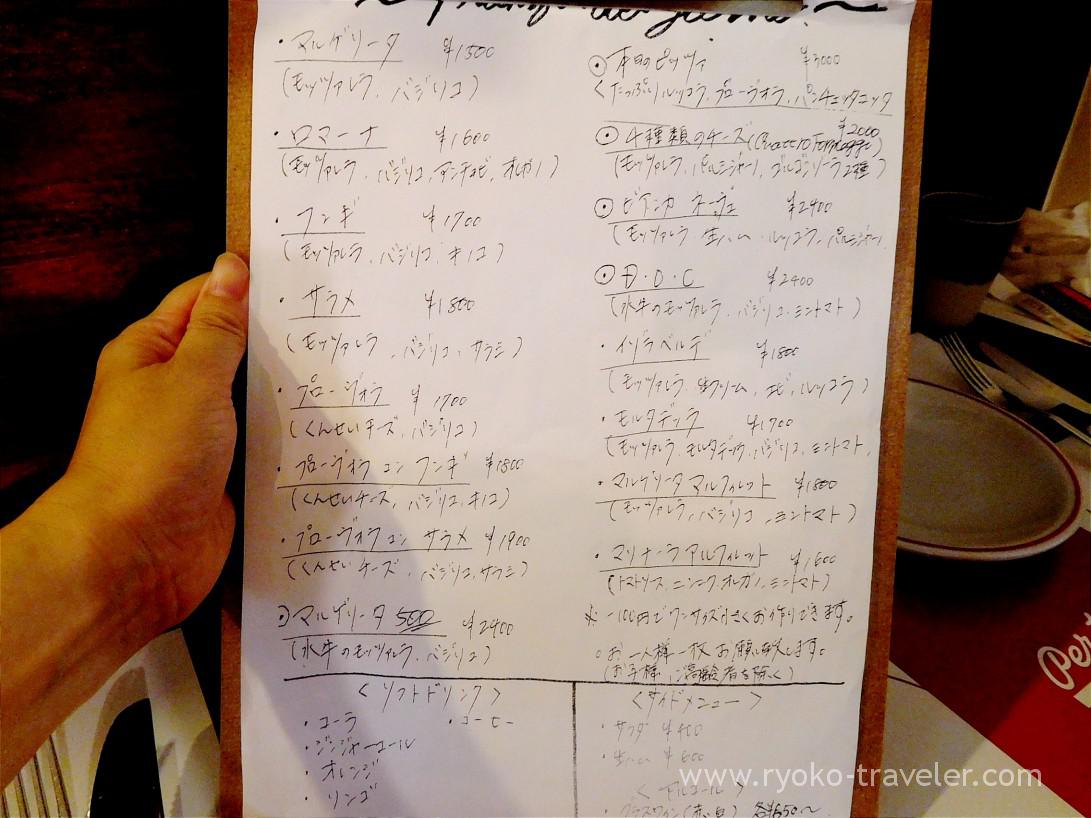 ・マルゲリータ ¥1500
(モッツァレラ、バジリコ)
・ロマーナ ¥1600
(モッツァレラ、バジリコ、アンチョビ、オレガノ)
・フンギ ¥1700
(モッツァレラ、バジリコ、キノコ)
・サラメ ¥1800
(モッツァレラ、バジリコ、サラミ)
・プローヴォラ ¥1700
(くんせいチーズ、バジリコ)
・プローヴォラ コン フンギ ¥1800
(くんせいチーズ、バジリコ、キノコ)
・プローヴォラ コン サラメ ¥1900
(くんせいチーズ、バジリコ、サラミ)
⊙マルゲリータ 500 ¥2400
(水牛のモッツァレラ、バジリコ)
<ソフトドリンク>
・コーラ ・コーヒー
・ジンジャーエール
・オレンジ
・リンゴ
⊙本日のピッツァ ¥3000
<たっぷりルッコラ、プローヴォラ、パンチェッタ
⊙4種類のチーズ(Quattro Formaggi) ¥2000
(モッツァレラ、パルミジャーノ、ゴルゴンゾーラ2種)
⊙ビアンカ ネーヴェ ¥2400
(モッツァレラ、生ハム、ルッコラ、パルミジャーノ
⊙D・O・C ¥2400
(水牛のモッツァレラ、バジリコ、ミニトマト)
・イゾラベルデ ¥1800
(モッツァレラ、生クリーム、エビ、ルッコラ)
・モルタデッラ ¥1700
(モッツァレラ、モルタデッラ、バジリコ、ミニトマト、
・マルゲリータ アルフィレット ¥1800
(モッツァレラ、バジリコ、ミニトマト)
・マリナーラ アルフィレット ¥1600
(トマトソース、ニンニク、オレガノ、ミニトマト)
※-100円でワンサイズ小さくお作りできます。
○お一人様一枚お願い致します。
(お子様、ご高齢者を除く)
<サイドメニュー>
・サラダ ¥400
・生ハム ¥600
<アルコール>
・グラスワイン(赤、白) 各¥650〜
Per
www.ryoko-traveler.com